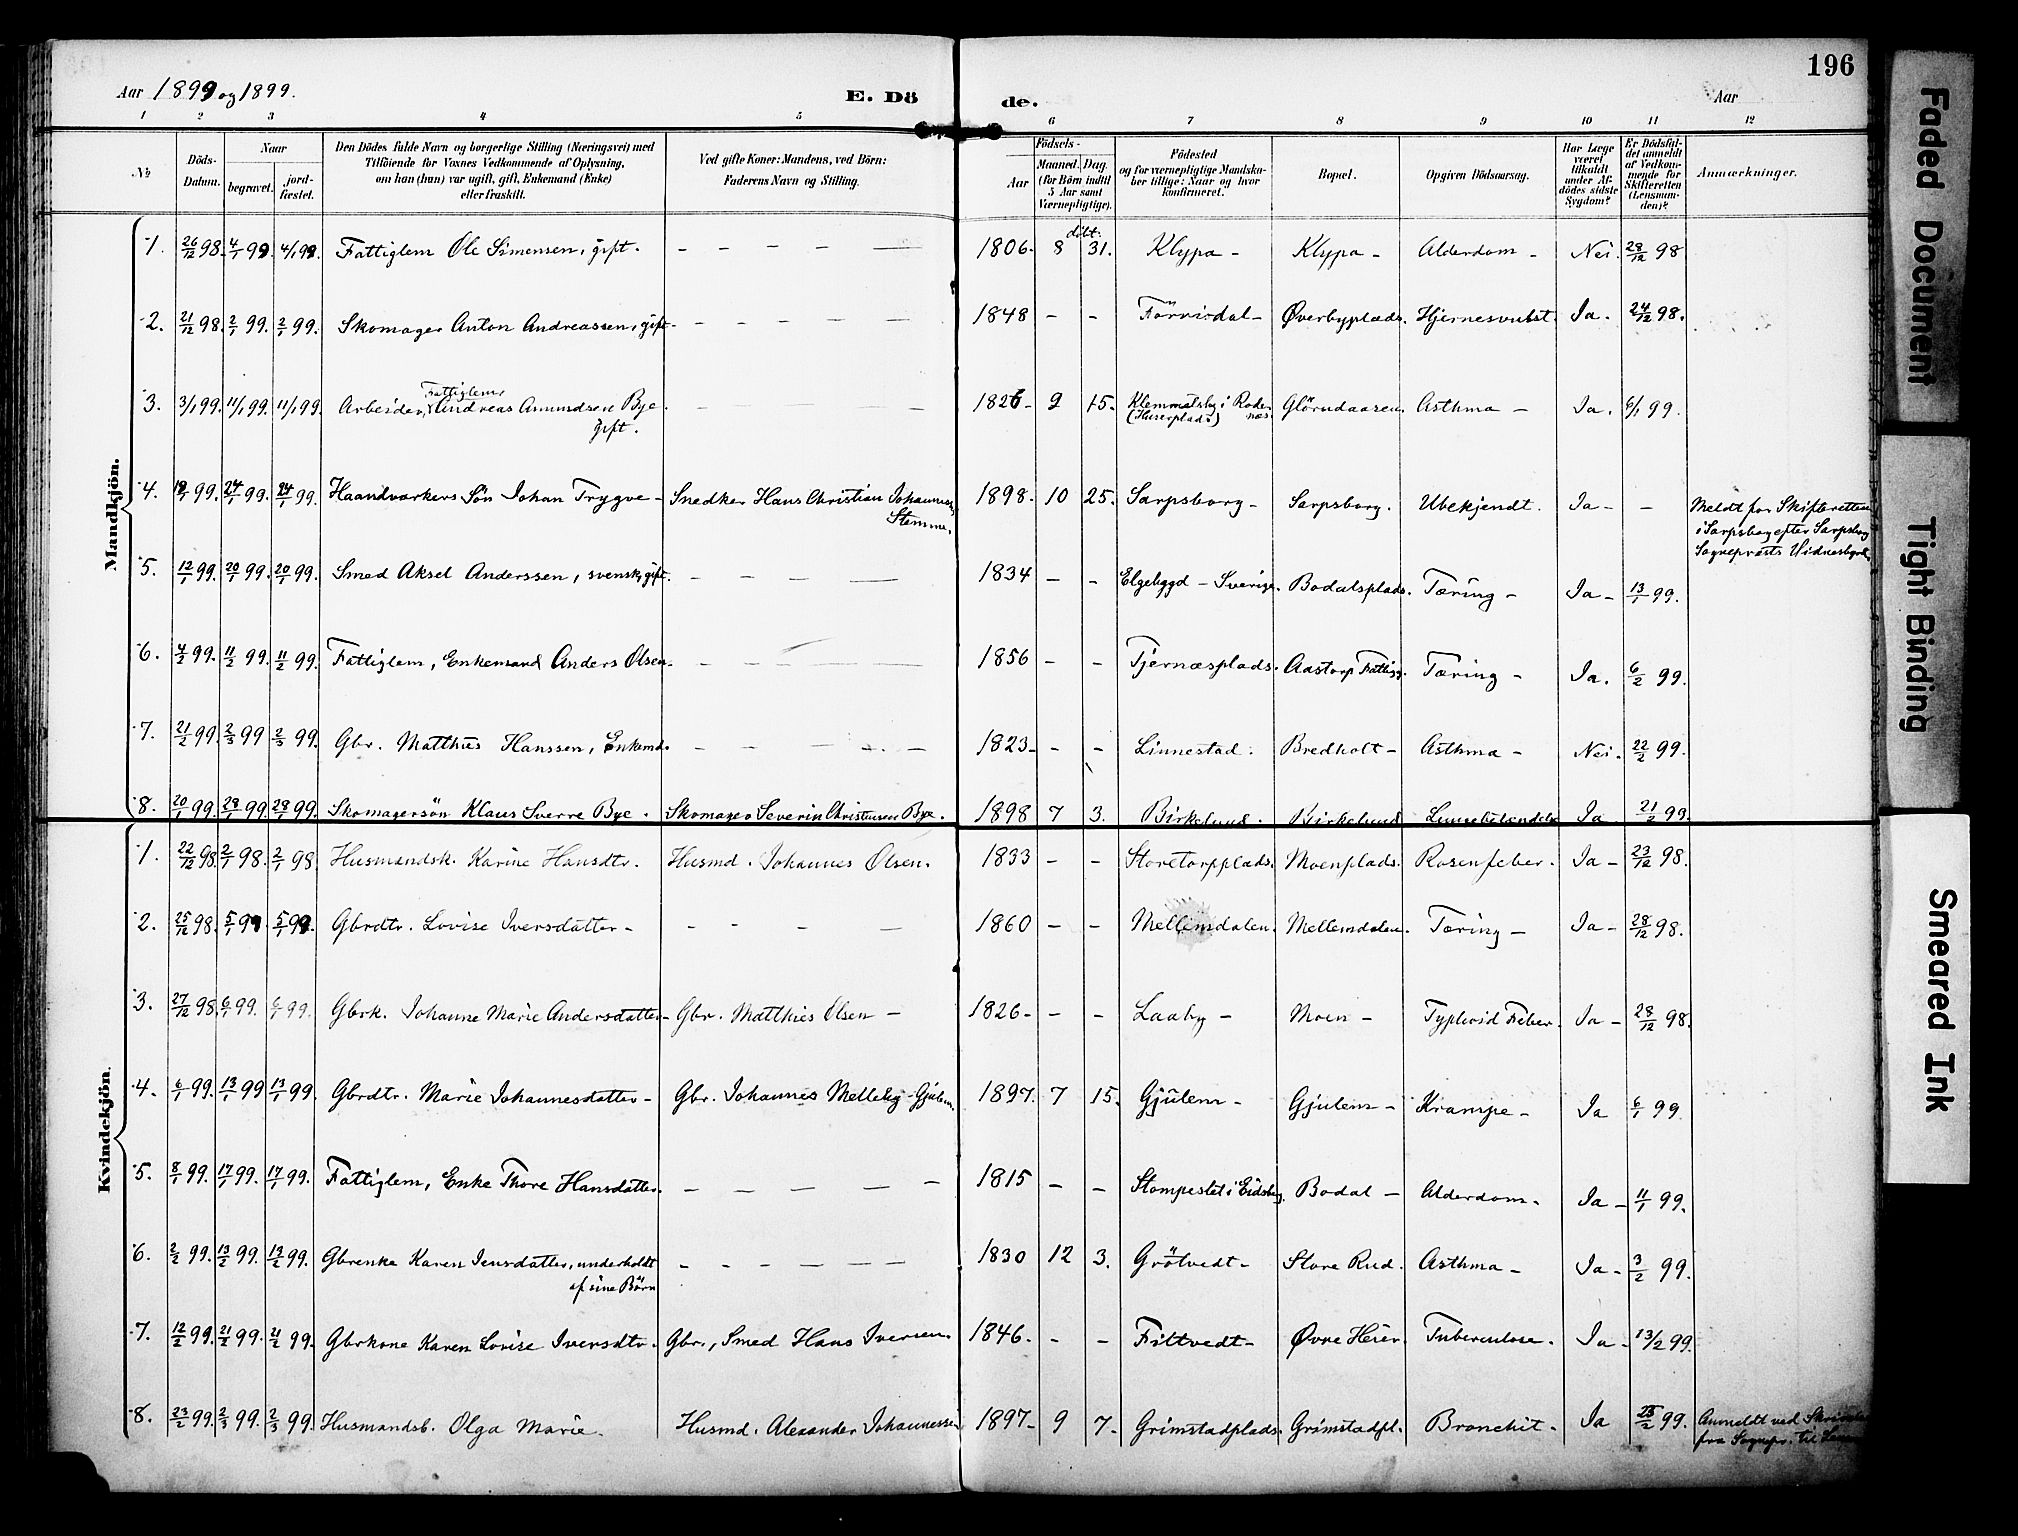 196
Aar 1899 og 1899.
E. Dö de.
Aar
1 2 3 4 5 6 7 8 9 10 11 12
№
Döds-Datum.
Naar
begravet. jord-fæstet.
Den Dödes fulde Navn og borgerlige Stilling (Næringsvei) med
Tilföiende for Voxnes Vedkommende af Oplysning,
om han (hun) var ugift, gift, Enkemand (Enke)
eller fraskilt.
Ved gifte Koner: Mandens, ved Börn:
Faderens Navn og Stilling.
Födsels-
Aar
Maaned. Dag.
(for Börn indtil
5 Aar samt
Værnepligtige).
Födested
og for værnepligtige Mandska-
ber tillige: Naar og hvor
konfirmeret.
Bopæl.
Opgiven Dödsaarsag.
Har Læge
været
tilkaldt
under Af-
dödes sidste
Sygdom?
Er Dödsfal-
det anmeldt
af Vedkom-
mende for
Skifteretten
(Lensman-
den)?
Anmærkninger.
Mandkjön.
1. 26/12 98. 4/1 99 4/1 99 Fattiglem Ole Simensen, gift. - - - - — 1806. 8 31. Klypa - Klypa - Alderdom - Nei. 28/12 98
2. 21/12 98. 2/1 99. 2/1 99. Skomager Anton Andreassen, gift. - - - - — 1848 - - Överbyplads. Ja. 24/12 98.
Fattiglem
3. 3/1 99. 11/1 99. 11/1 99. Arbeider, Andreas Amundsen Bye 1826 - 9 15. Asthma - Ja. 6/1 99.
gift.
4. 99. 24/1 99. 24/1 99. Haandværkers Sön Johan Trygve - Snedker Hans Christian Johannes 1898. 10 25. Sarpsborg - Sarpsborg. Ubekjendt. Ja - - Meldt for Skifteretten
Stemme. i Sarpsborg efter Sarpsborg
Sognepræsts Vidnesbyrd
5. 12/1 99. 20/1 99. 20/1 99. Smed Aksel Anderssen, svensk, gift. - - - — 1834 - - Sverige. Bodalsplads. Tæring - Ja - 13/1 99.
6. 4/2 99. 11/2 99. 11/2 99. Fattiglem, Enkemand Anders Olsen. - - - — 1856 - - Tjernæsplads. Aastorp Tæring - Ja. 6/2 99.
7. 21/2 99. 2/3 99 2/3 99. Gbr. Matthies Hanssen, Enkemd. - - - - - 1823 - - - Linnestad. Bredholt - Asthma - Nei. 22/2 99.
8. 20/1 99. 28/1 99. 28/1 99. Skomagersön Klaus Sverre Bye. Skomager Severin Christensen Bye. 1898 7 3. Birkelund. Birkelund Ja 21/2 99
Kvindekjön.
1. 22/12 98. 2/1 98. 2/1 98. Husmandsk. Karine Hansdtr. Husmd. Johannes Olsen. 1833 - - Storetorpplads. Moenplads. Rosenfeber. Ja - 23/12 98.
2. 25/12 98. 5/1 99 5/1 99. Gbrdtr. Lovise Iversdatter - - - - — 1860 - - Mellemdalen. Mellemdalen. Tæring - Ja - 28/12 98.
3. 27/12 98. 6/1 99. 6/1 99. Gbrk. Johanne Marie Andersdatter - Gbr. Matthies Olsen - 1826 - - - Laaby - Moen - Typhoid Feber. Ja - 28/12 98.
4. 6/1 99. 13/1 99 13/1 99. Gbrdtr. Marie Johannesdatter - Gbr. Johannes Melleby - Gjulem. 1897. 7 15. Gjulem - Gjulem - Krampe - Ja 6/1 99.
5. 8/1 99. 17/1 99. 17/1 99. Fattiglem, Enke Thore Hansdatter. - - - — - 1815 - - Bodal - Alderdom. Ja - 11/1 99.
6. 2/2 99. 13/2 99. 13/2 99. Gbrenke Karen Jensdatter, underholdt - - - - - - 1830 12 3. Grötvedt - Store Rud. Asthma - Ja - 3/2 99.
af sine Börn
7. 12/2 99. 21/2 99. 21/2 99. Gbrkone Karen Lovise Iversdtr. Gbr., Smed Hans Iversen. 1846. - - Filtvedt - Övre Heier. Tuberculose. Ja - 13/2 99.
8. 23/2 99. 2/3 99. 2/3 99. Husmandsb. Olga Marie. Husmd. Alexander Johannessen 1897. 9 7. Grimstadplads. Grimstadpl. Bronchit. Ja 25/2 99. Anmeldt ved
fra Sognepr. til
Faded Document
Tight Binding
Smeared Ink